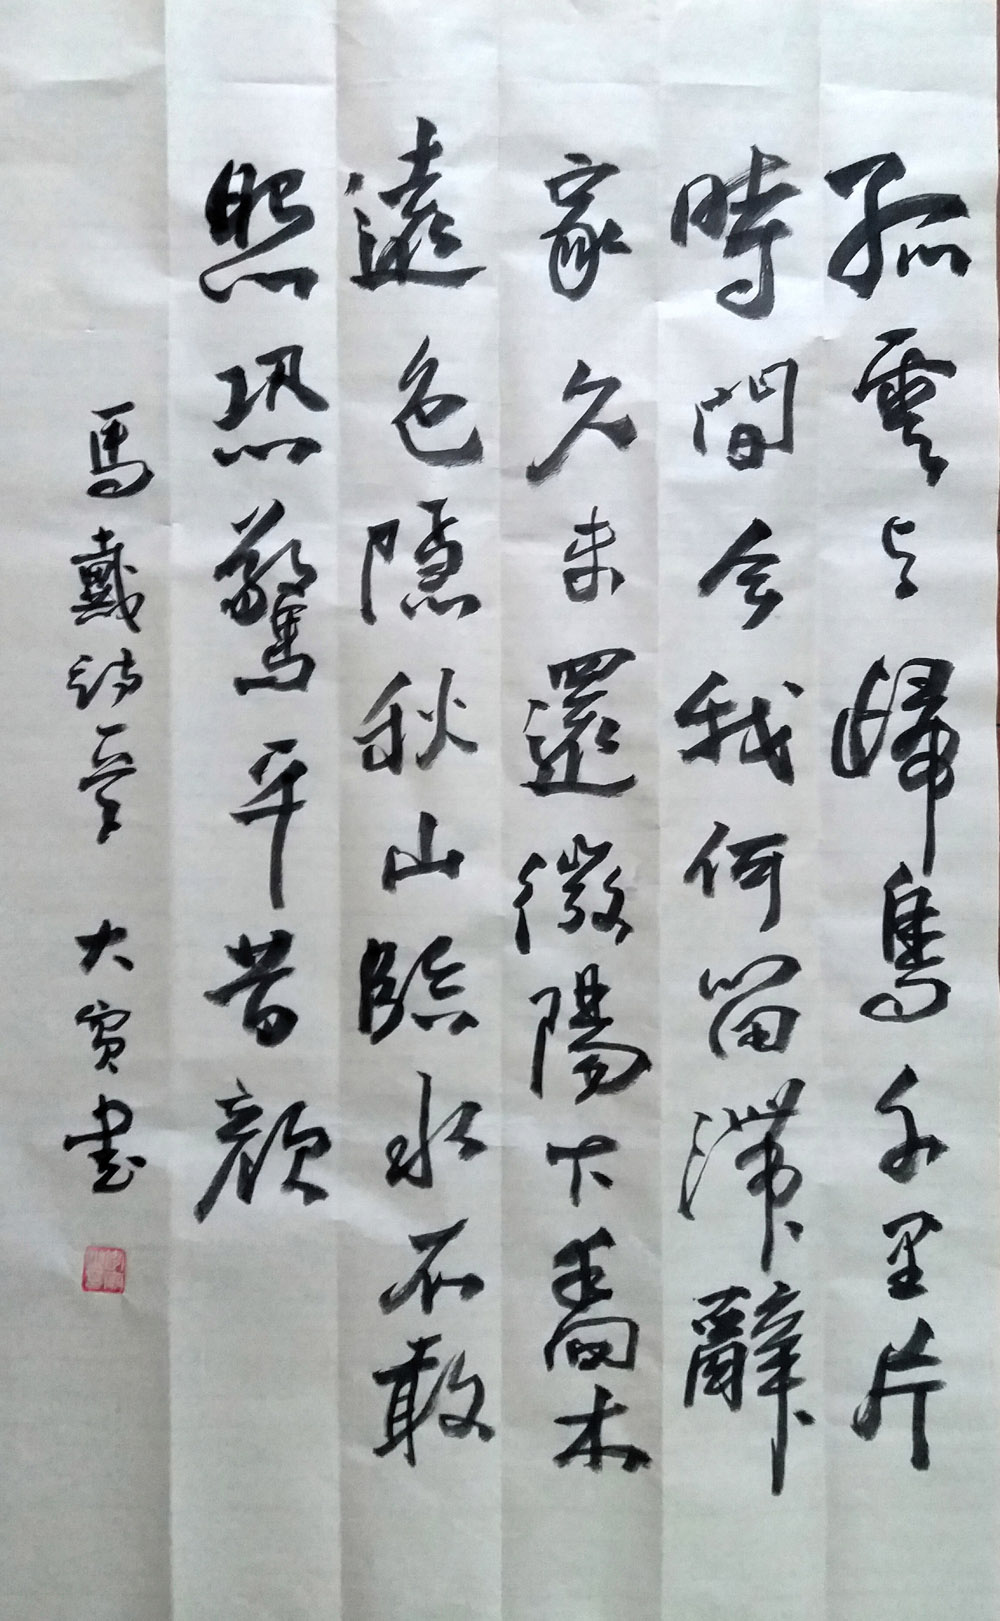 孤雲与歸鳥千里片
時間念我何留滯辭
家久未還微陽下喬木
遠色隱秋山臨水不敢
照恐驚平昔顏
馬戴詩一首 大書